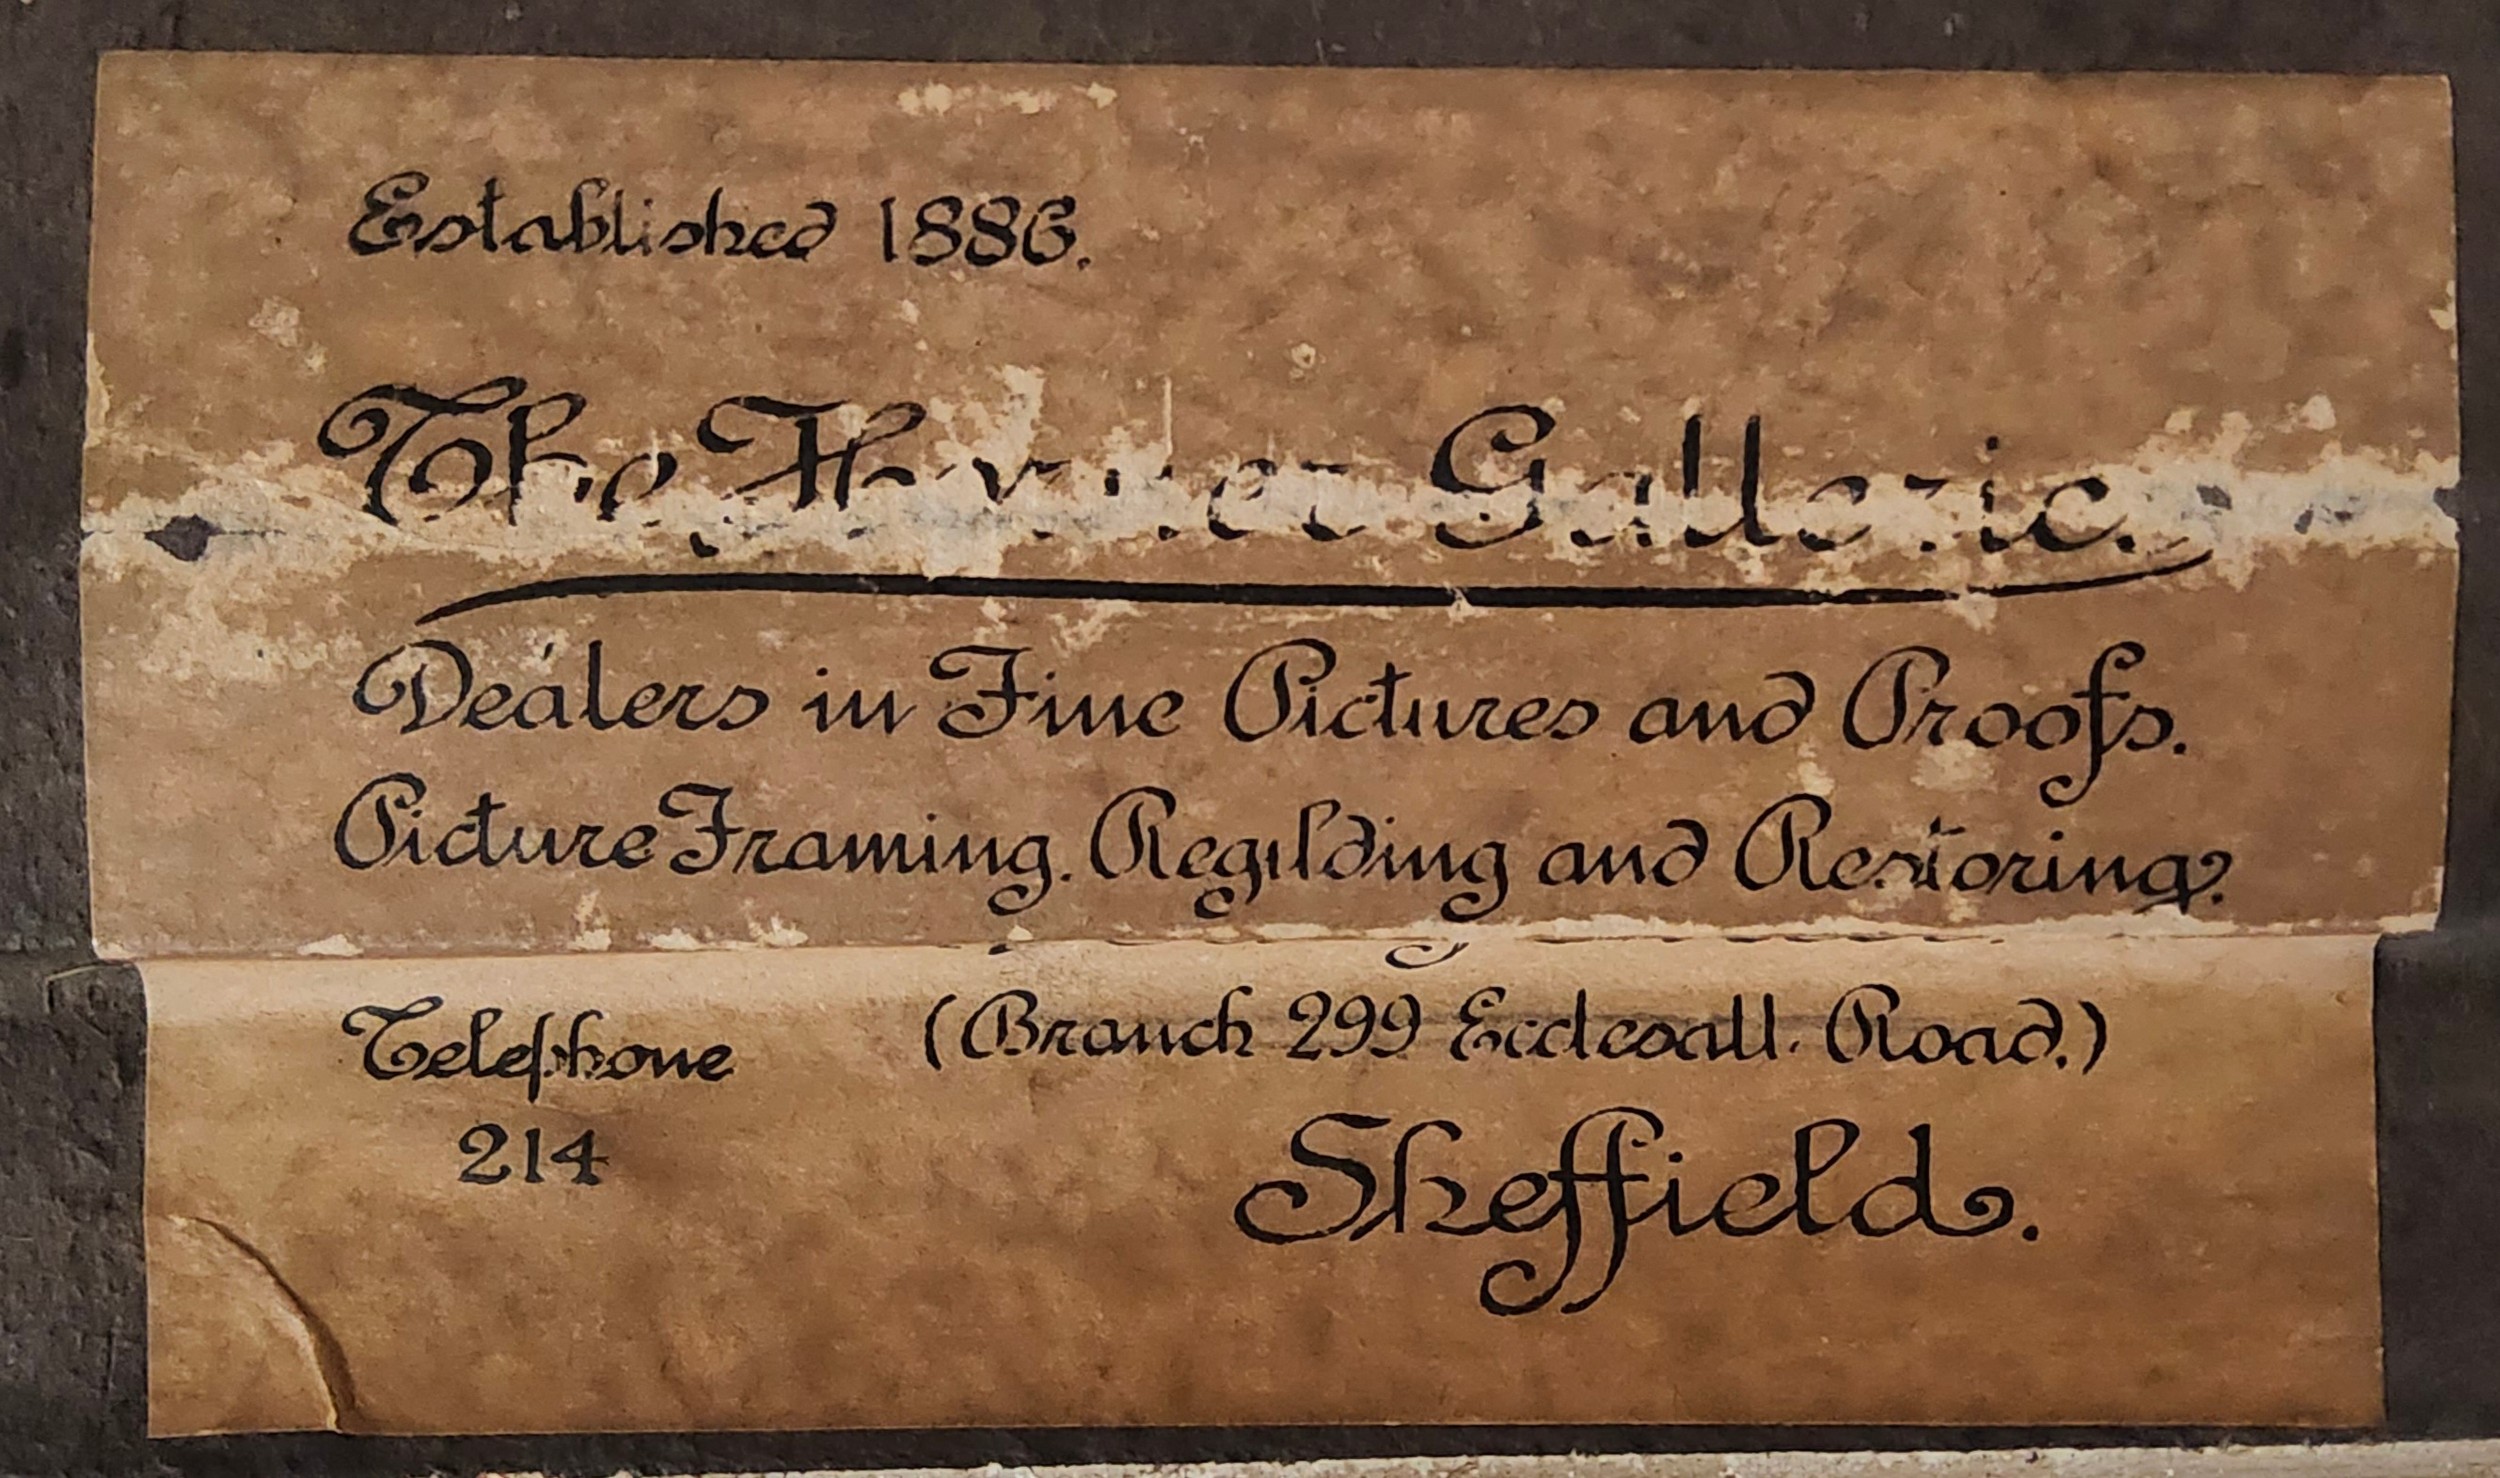 Established 1886.
The Galleries
Dealers in Fine Pictures and Proofs.
Picture Framing. Regilding and Restoring.
Telephone (Branch 299 Ecclesall. Road.)
214
Sheffield.